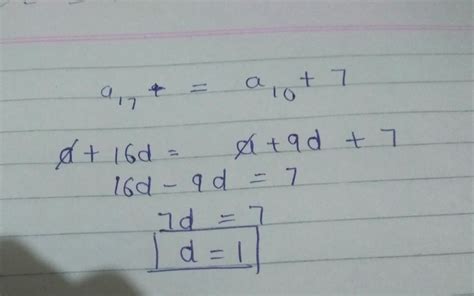 a₁₇ = a₁₀ + 7
a + 16d = a + 9d + 7
16d - 9d = 7
7d = 7
d = 1